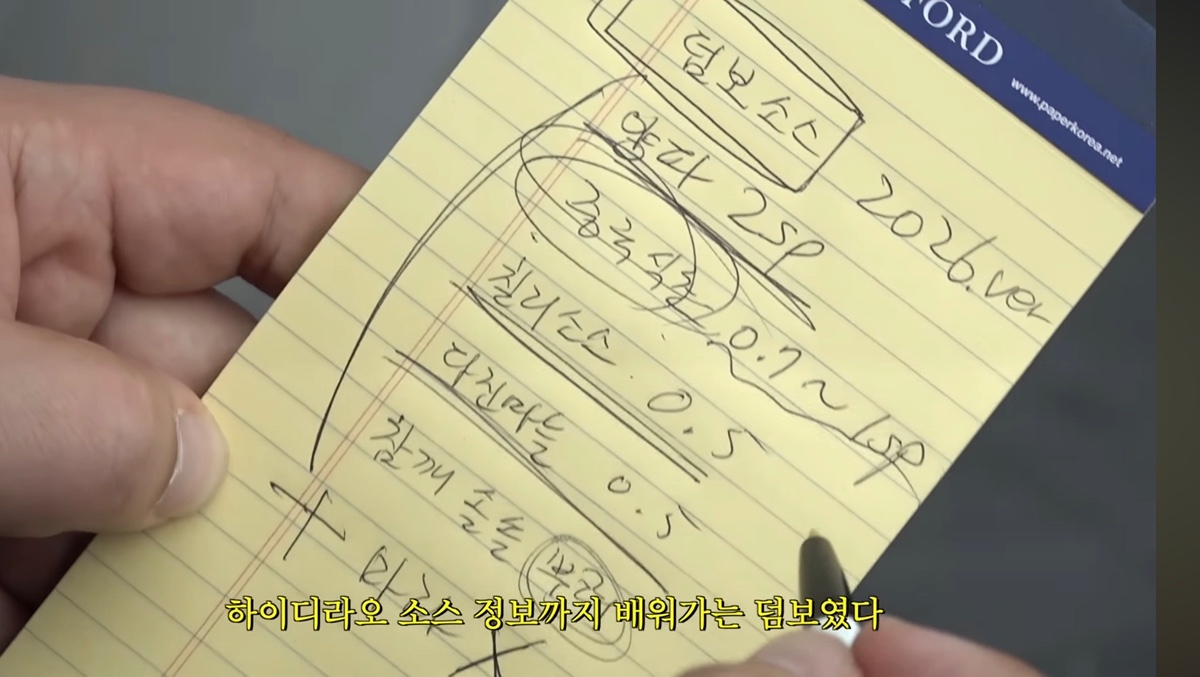 FORD
www.paperkorea.net
덤보소스
2026.ver
양파 2sp
중국식초 0.7~1sp
칠리소스 0.5
다진마늘 0.5
참깨 솔솔
+
하이디라오 소스 정보까지 배워가는 덤보였다